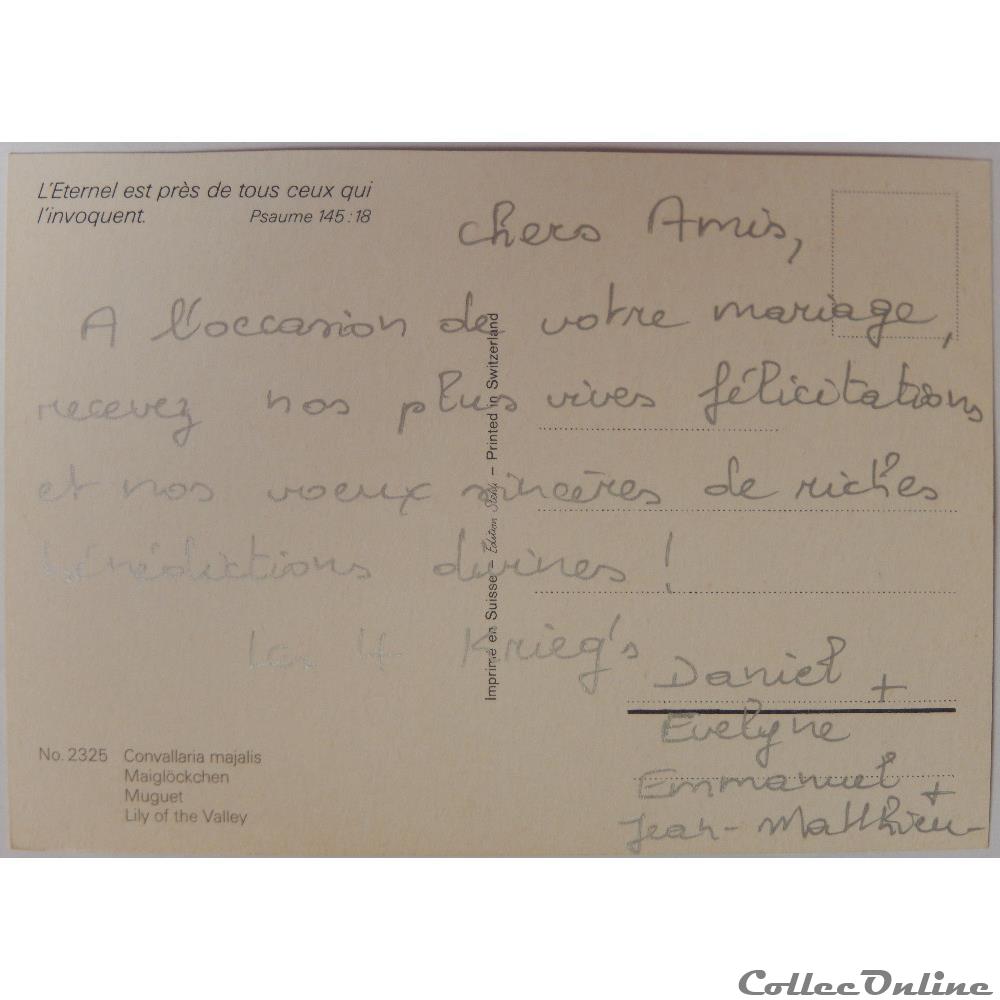 L'Eternel est près de tous ceux qui
l'invoquent. Psaume 145:18
chers Amis,
A l'occasion de votre mariage,
recevez nos plus vives félicitations
et nos voeux sincères de riches
bénédictions divines !
les 4 Krieg's
Daniel +
Evelyne
Emmanuel +
Jean-Matthieu
Imprimé en Suisse – Edition Stehli – Printed in Switzerland
No. 2325 Convallaria majalis
Maiglöckchen
Muguet
Lily of the Valley
CollecOnline